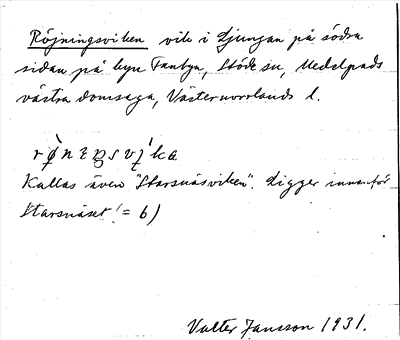 Röjningsviken vik i Ljungan på södra
sidan på byn Fanbyn, Stöde sn, Medelpads
västra domsaga, Västernorrlands l.
Kallas även "Starsnäsviken". Ligger innanför
Starsnäset (= 6)
Valter Jansson 1931.